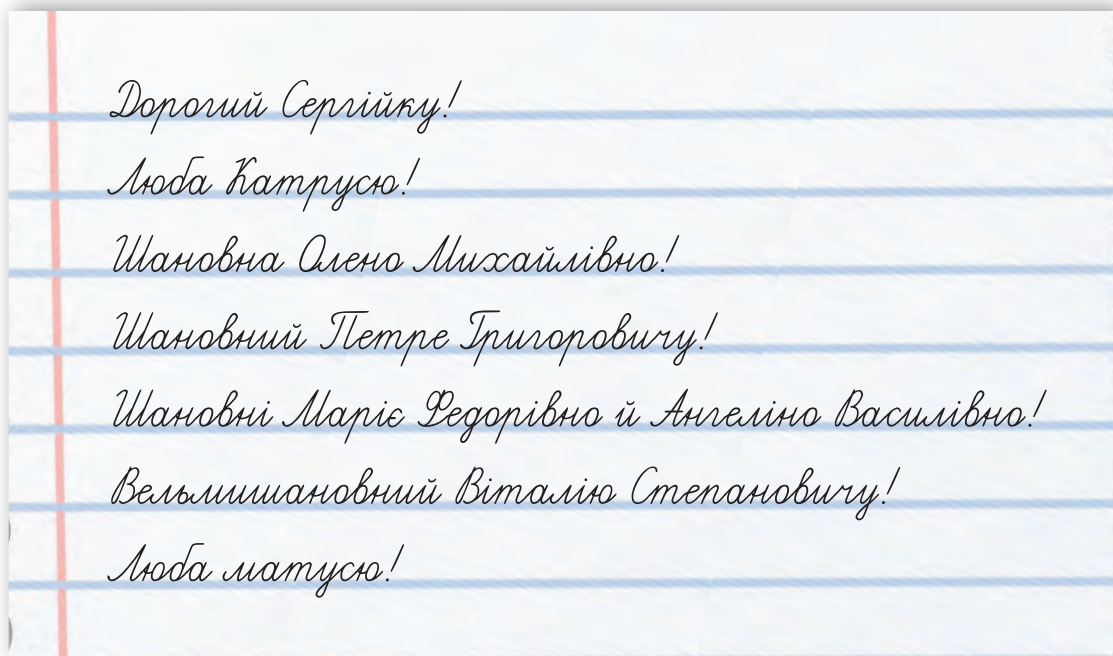 Дорогий Сергійку!
Люба Катрусю!
Шановна Олено Михайлівно!
Шановний Петре Григоровичу!
Шановні Маріє Федорівно й Ангеліно Василівно!
Вельмишановний Віталію Степановичу!
Люба матусю!